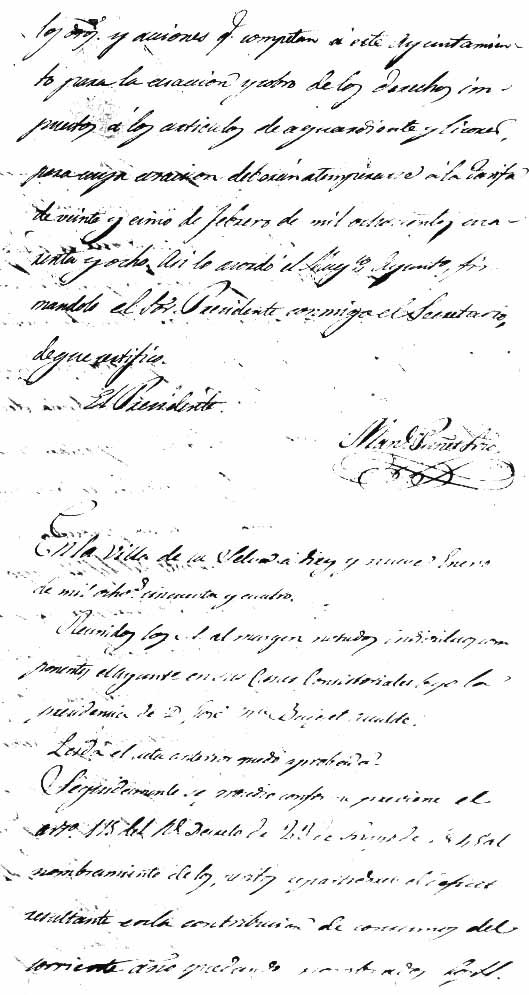 los dros. y acciones q. competan á este Ayuntamien-
to para la exaccion y cobro de los derechos im-
puestos á los articulos de aguardiente y licores,
para cuya exaccion deberán atemperarse á la tarifa
de veinte y cinco de febrero de mil ochocientos cua-
renta y ocho. Asi lo acordó el Ayunto, fir-
mandolo el Sr. Presidente conmigo el Secretario,
de que certifico.
El Presidente
En la Villa de la Selva á diez y nueve Enero
de mil ocho. cincuenta y cuatro.
Reunidos los S. al margen notados individuos com
ponentes el ayunte en sus Casas Consistoriales bajo la
presidencia de D. José Alcalde.
Leida el acta anterior quedó aprobada.
Seguidamente se procedio previene el
arto. 115 del Rl. Decreto de 23 de de al
nombramiento de los el deficit
resultante en la contribucion de consumos del
corriente año quedando nombrados los S.